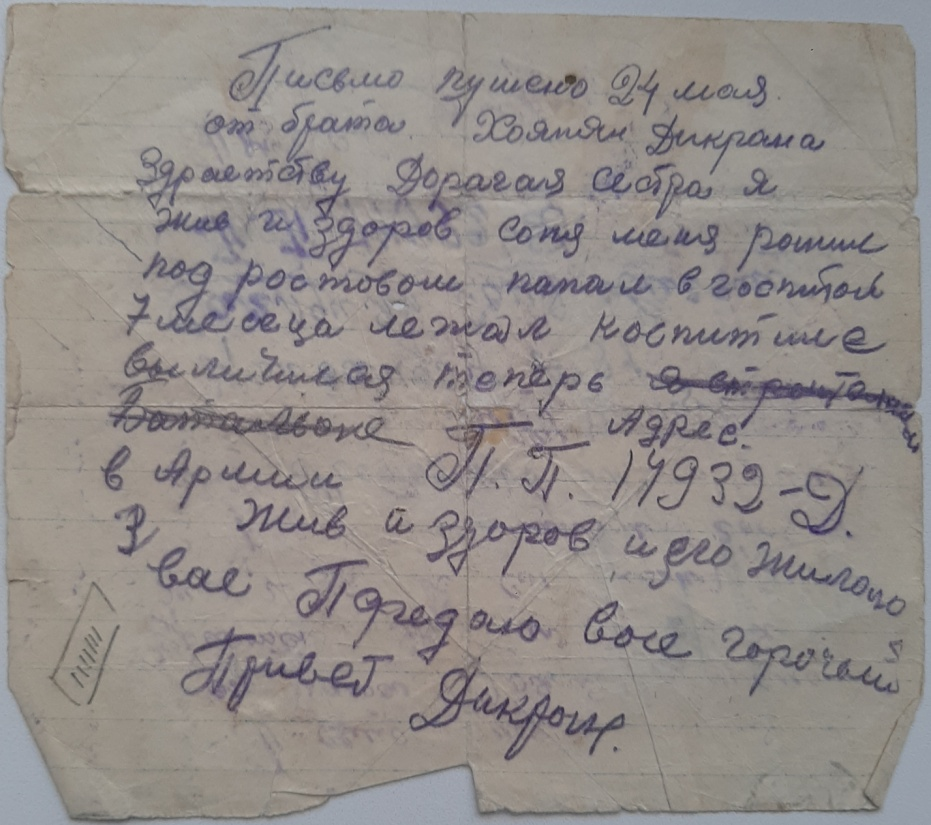 Письмо пушено 24 мая
от брата Хояпян Дикрана
Здраетству Дорагая сестра я
жив и здоров соня меня ранил
под ростовом папал в госпитал
7 месеца лежал коспитиле
вылičился теперь
Батальоне Адрес.
в Армии П.П. 17939-Д.
Я Жив и здоров и его жилаю
вас Передаю всем горочий
Привет Дикран.